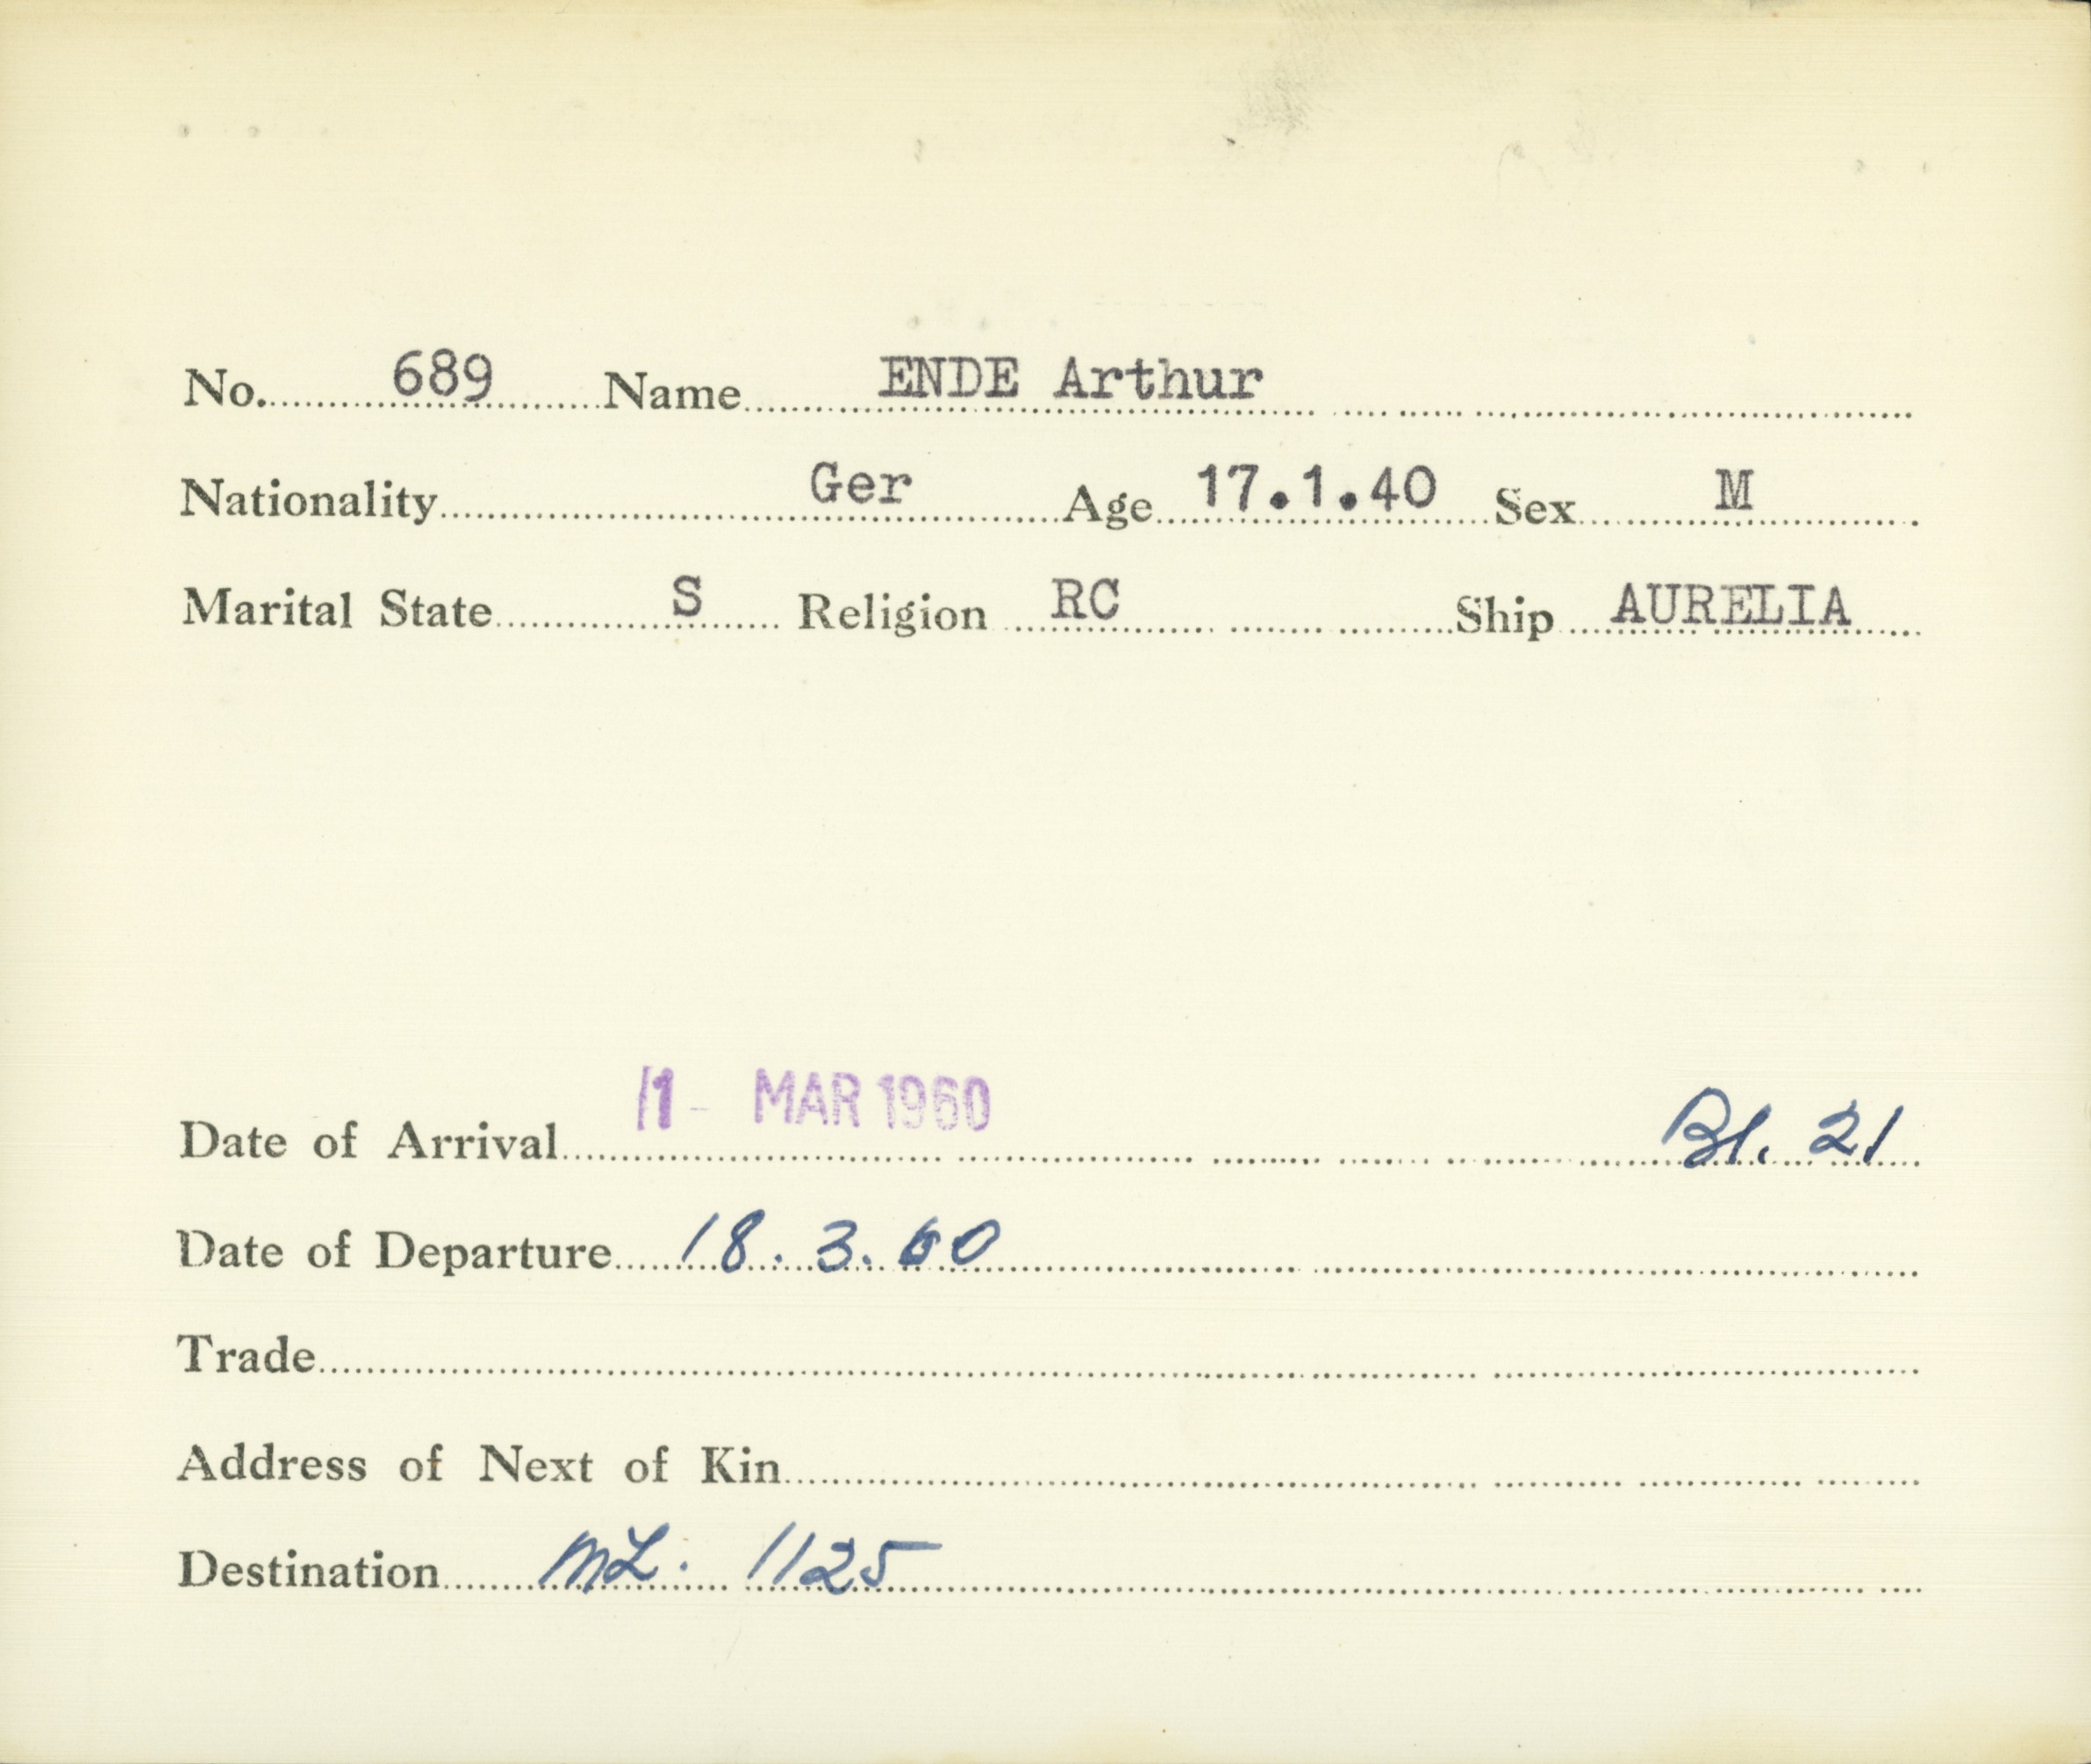 No. 689 Name ENDE Arthur
Nationality Ger Age 17.1.40 Sex M
Marital State S Religion RC Ship AURELIA
Date of Arrival 1 - MAR 1960 Bl. 21
Date of Departure 18.3.60
Trade
Address of Next of Kin
Destination ML. 1125